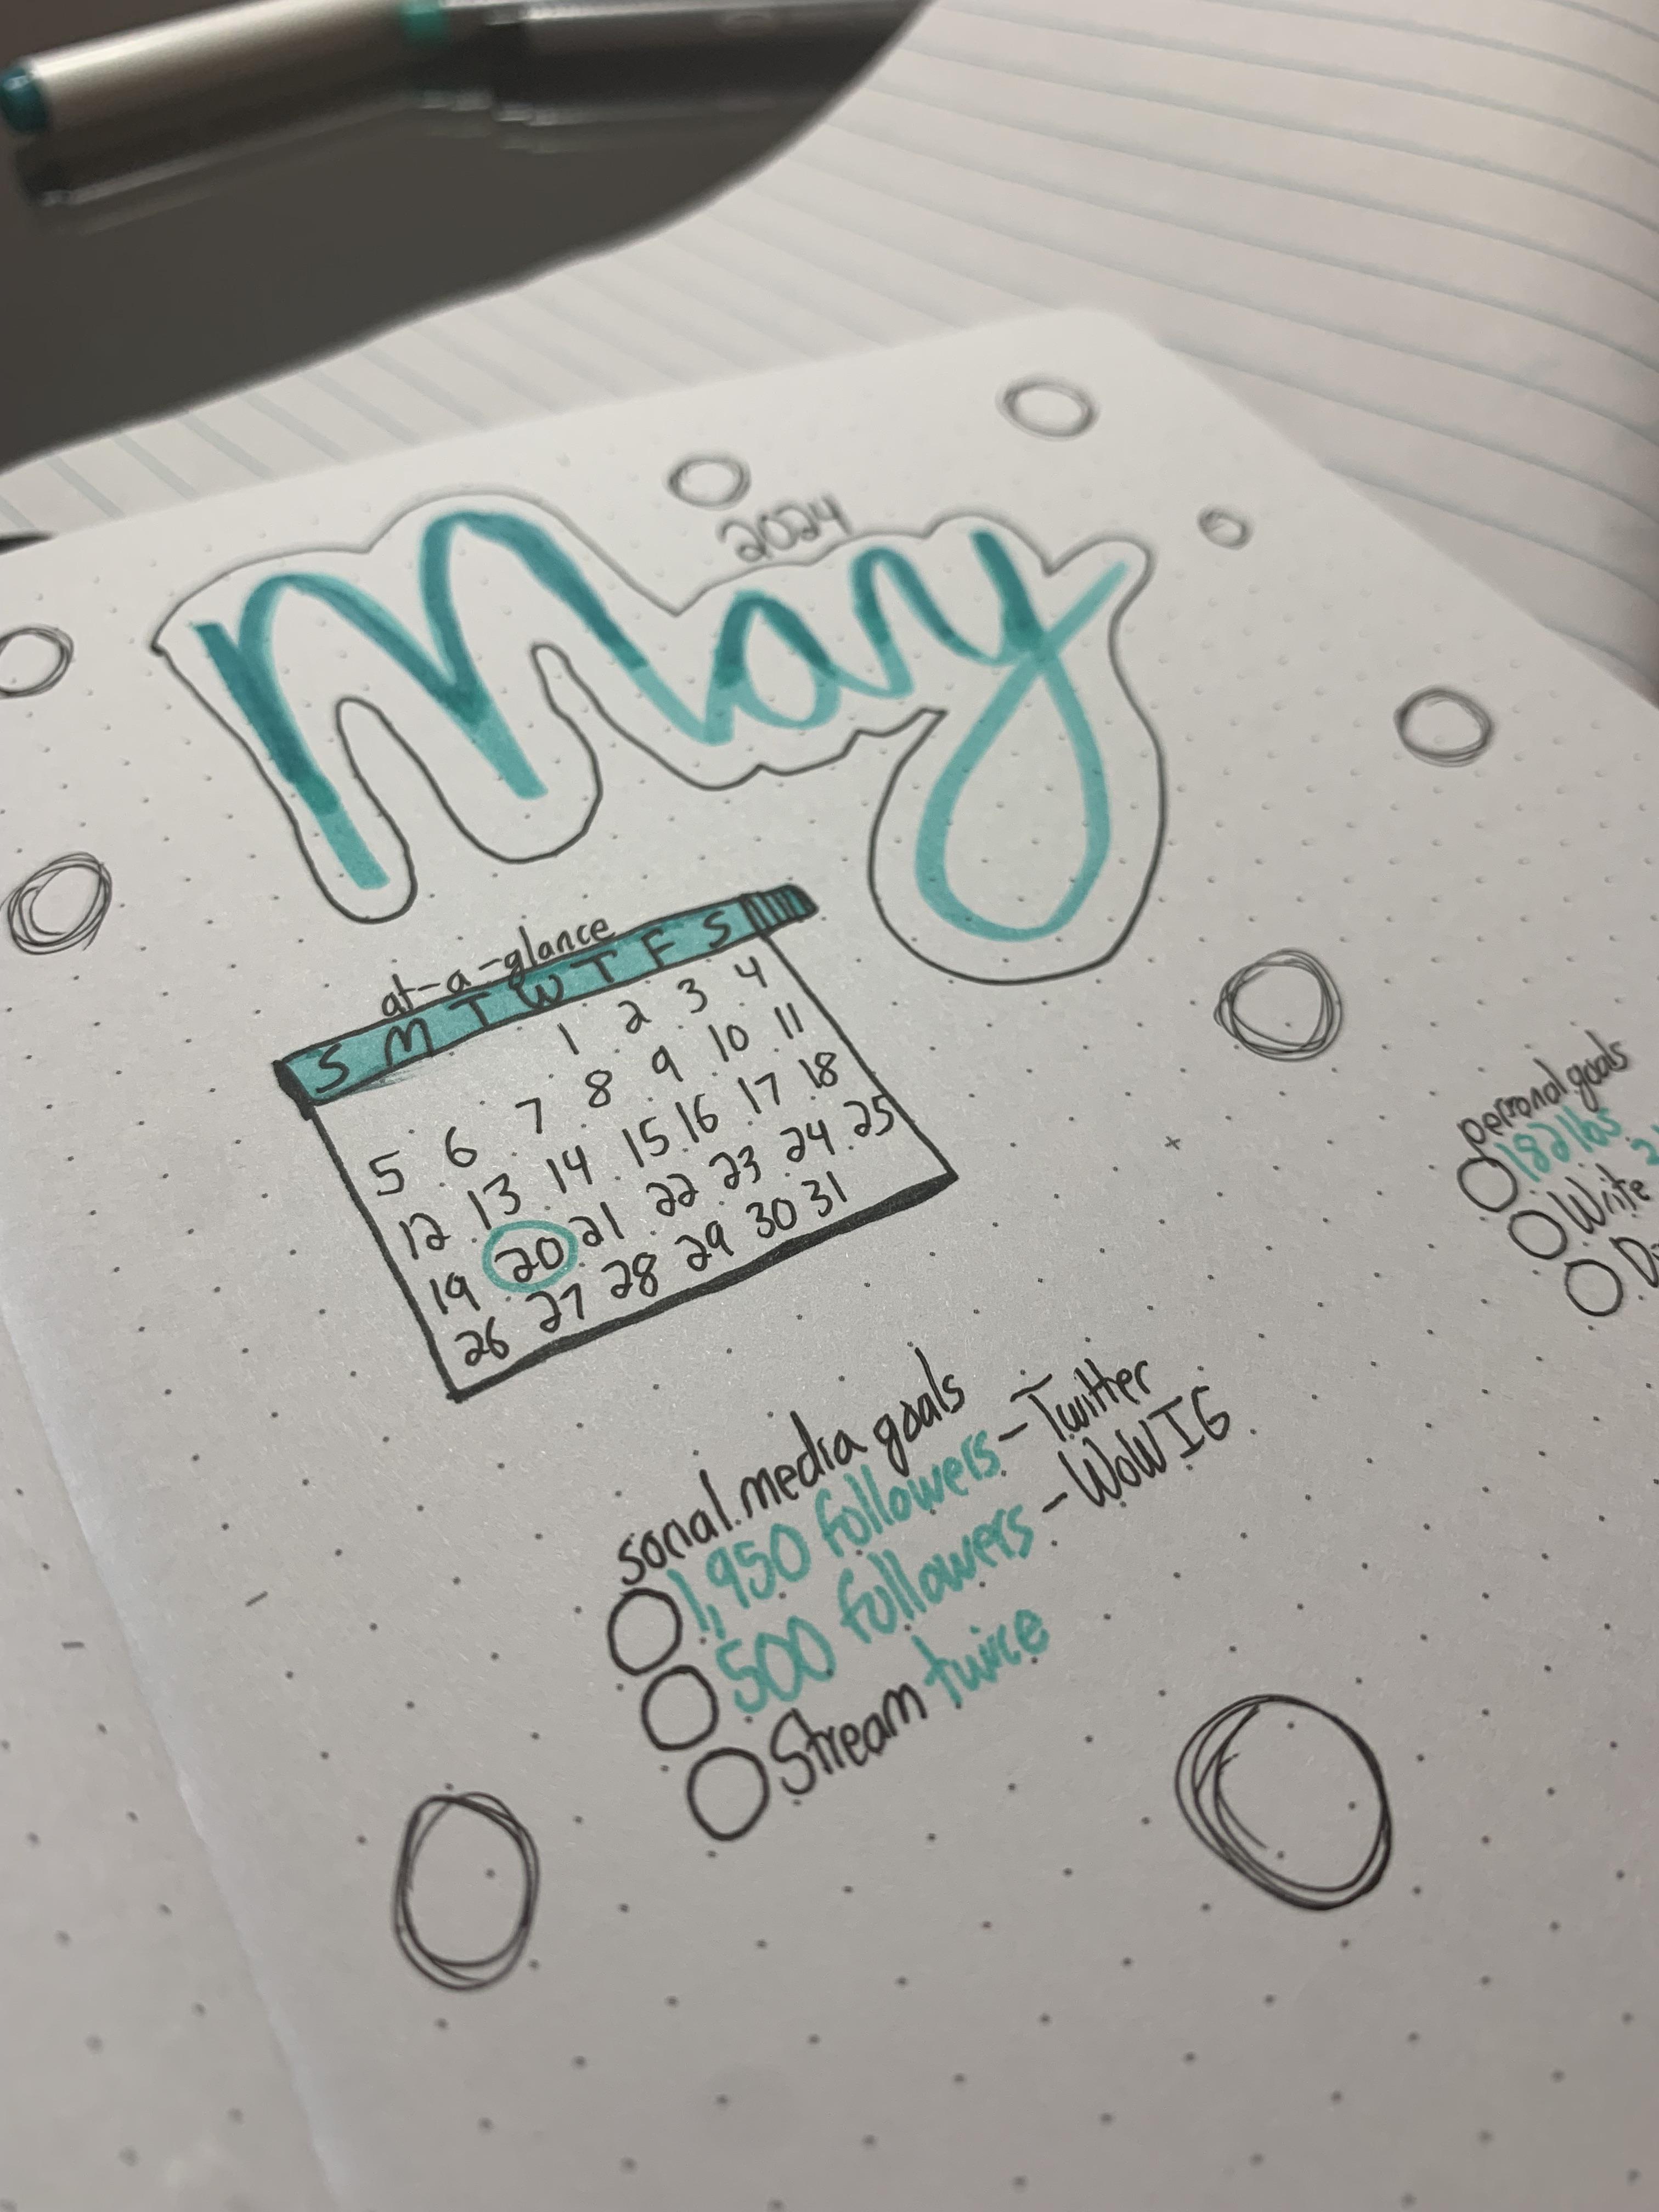 2024
May
at-a-glance
S M T W T F S
1 2 3 4
5 6 7 8 9 10 11
12 13 14 15 16 17 18
19 20 21 22 23 24 25
26 27 28 29 30 31
social media goals
1,950 followers - Twitter
500 followers - WoW IG
Stream twice
personal goals
182 lbs
Write